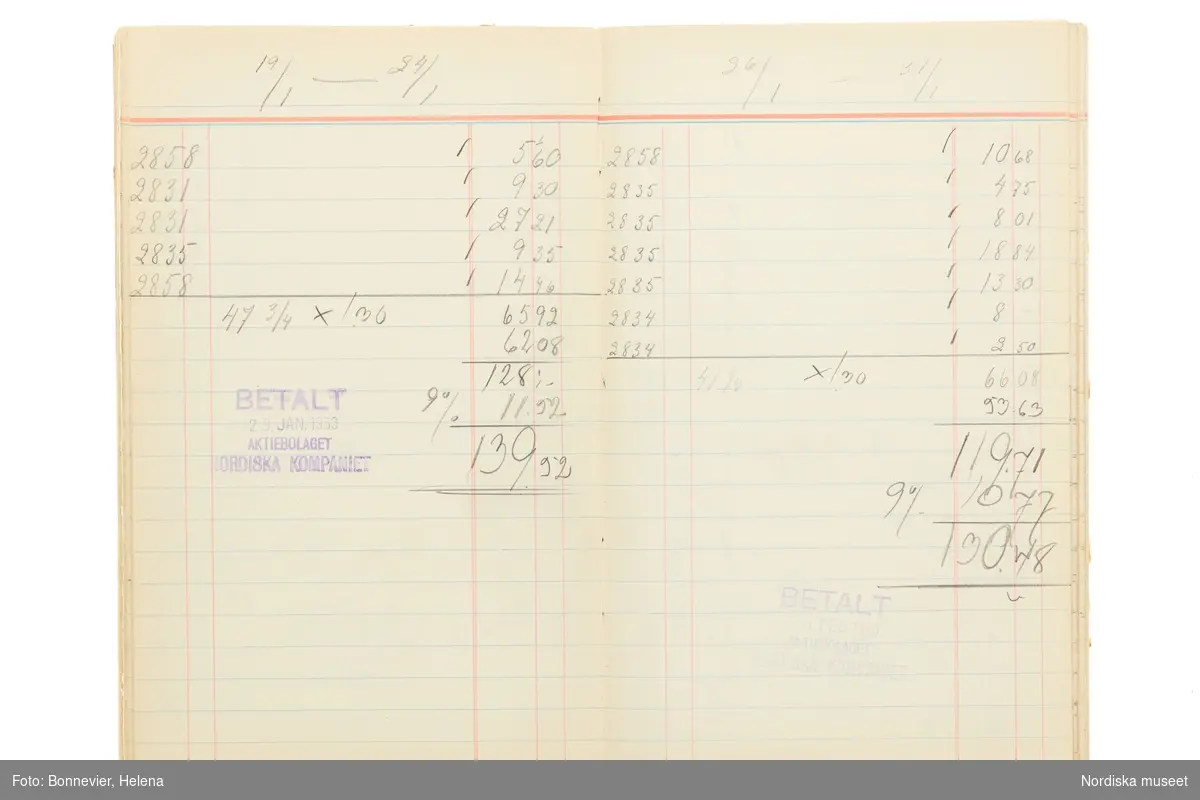 19/1 — 24/1
2858 1 5 60
2831 1 9 30
2831 1 27 21
2835 1 9 35
2858 1 14 46
47 3/4 × 1.30 65 92
62 08
128 :-
9% 11.52
139.52
BETALT
JAN. 1953
AKTIEBOLAGET
NORDISKA KOMPANIET
26/1 — 31/1
2858 1 10 68
2835 1 4 75
2835 1 8 01
2835 1 18 84
2835 1 13 30
2834 1 8 -
2834 1 2 50
× 1.30 66 08
53.63
119.71
9% 10.77
130.48
BETALT
AKTIEBOLAGET
NORDISKA KOMPANIET
Foto: Bonnevier, Helena
Nordiska museet